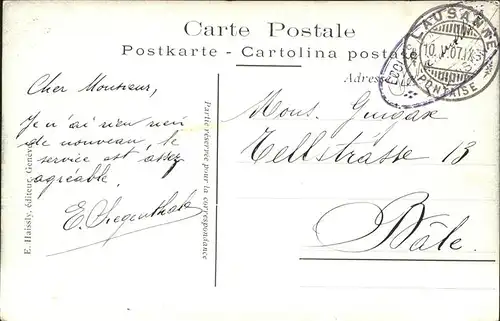 Carte Postale
Postkarte - Cartolina postale
LAUSANNE
10. V. 07. IX
PONTAISE
Adresse
Cher Monsieur,
Je n'ai rien
de nouveau, le
service est assez
agréable.
E. Siegenthaler
E. Haissly, éditeur, Genève
Partie réservée pour la correspondance
Mons. Guigax
Tellstrasse 13
Bâle.